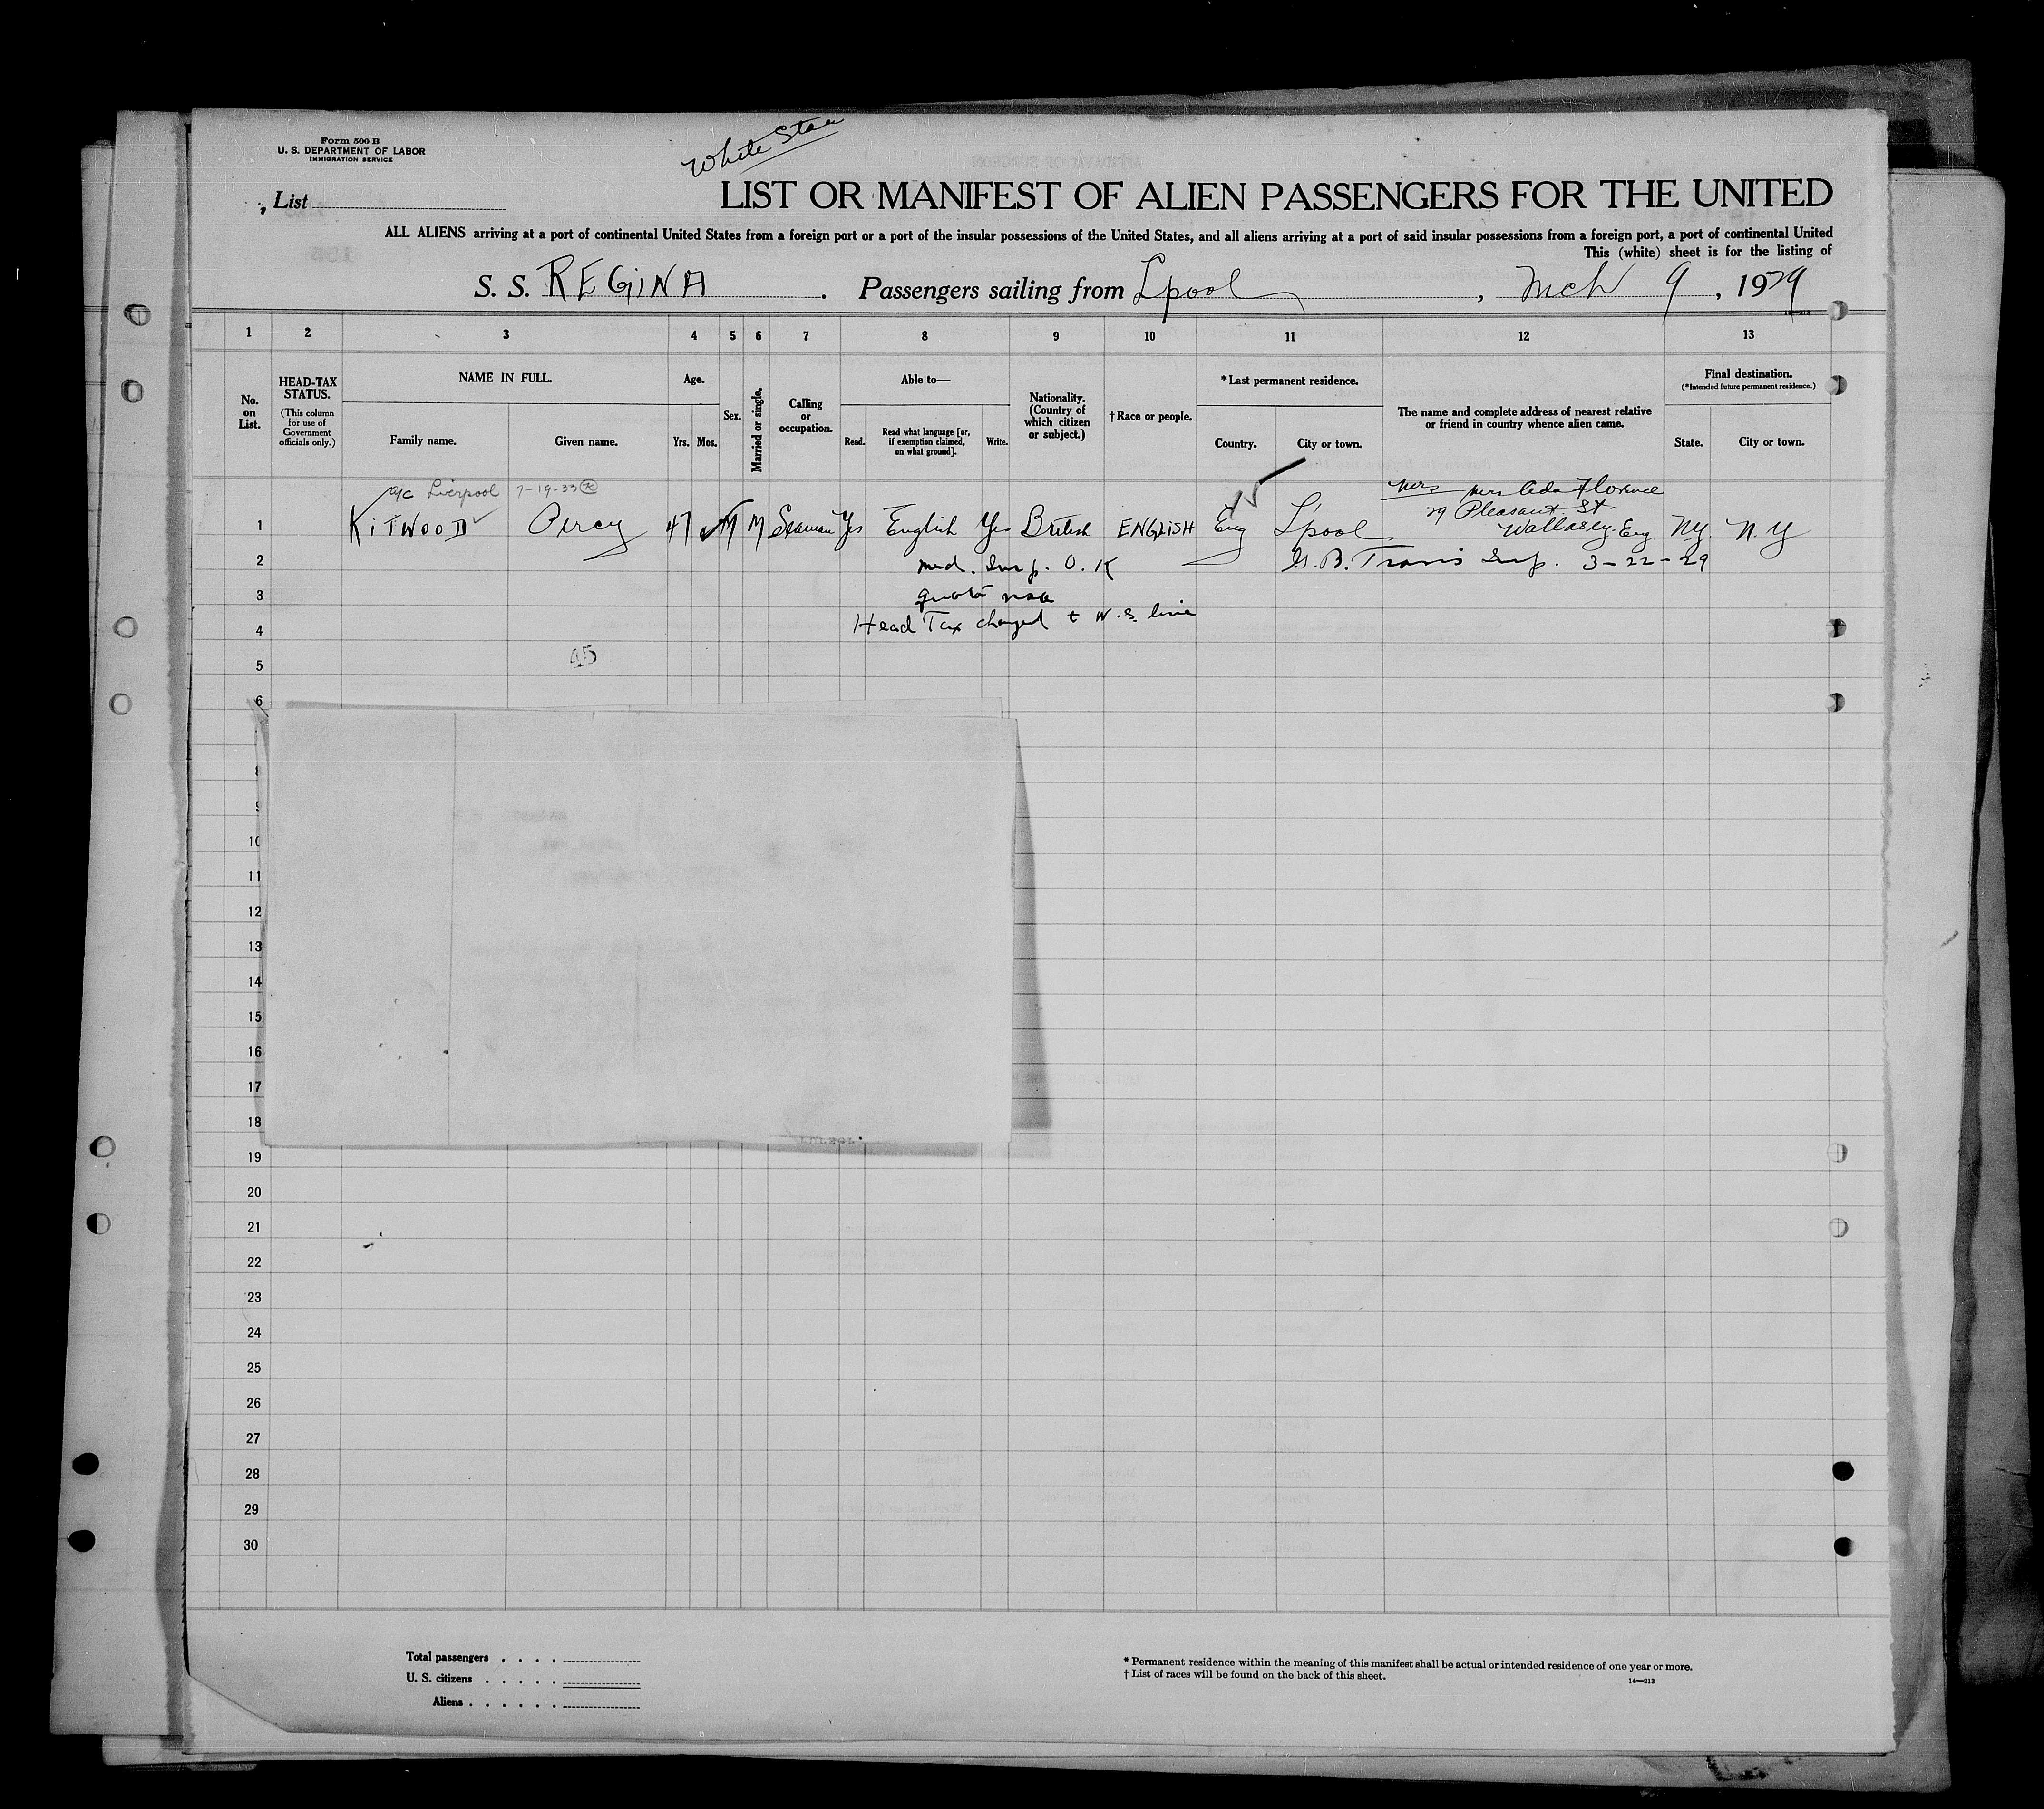 Form 500 B
U. S. DEPARTMENT OF LABOR
IMMIGRATION SERVICE
White Star
, List
LIST OR MANIFEST OF ALIEN PASSENGERS FOR THE UNITED
ALL ALIENS arriving at a port of continental United States from a foreign port or a port of the insular possessions of the United States, and all aliens arriving at a port of said insular possessions from a foreign port, a port of continental United
This (white) sheet is for the listing of
S. S. REGINA . Passengers sailing from Lpool , Mch 9 , 1929
14—213
1 2 3 4 5 6 7 8 9 10 11 12 13
No. on List.
HEAD-TAX STATUS.
(This column for use of Government officials only.)
NAME IN FULL.
Family name. Given name.
Age.
Yrs. Mos.
Sex.
Married or single.
Calling or occupation.
Able to—
Read. Read what language [or, if exemption claimed, on what ground]. Write.
Nationality. (Country of which citizen or subject.)
† Race or people.
* Last permanent residence.
Country. City or town.
The name and complete address of nearest relative or friend in country whence alien came.
Final destination.
(*Intended future permanent residence.)
State. City or town.
Liverpool 7-19-33
Mrs Mrs Florence
29 Pleasant St
1 KITWOOD Percy 47 M M Seaman Yes English Yes British ENGLISH Eng L'pool Wallasey. Eng NY. N.Y
2 med. Insp. O.K Insp. 3-22-29
3 quota visa
4 Head Tax charged W.S. line
5 45
6
8
9
10
11
12
13
14
15
16
17
18
19
20
21
22
23
24
25
26
27
28
29
30
Total passengers . . . .
U. S. citizens . . . . .
Aliens . . . . . .
* Permanent residence within the meaning of this manifest shall be actual or intended residence of one year or more.
† List of races will be found on the back of this sheet.
14—213